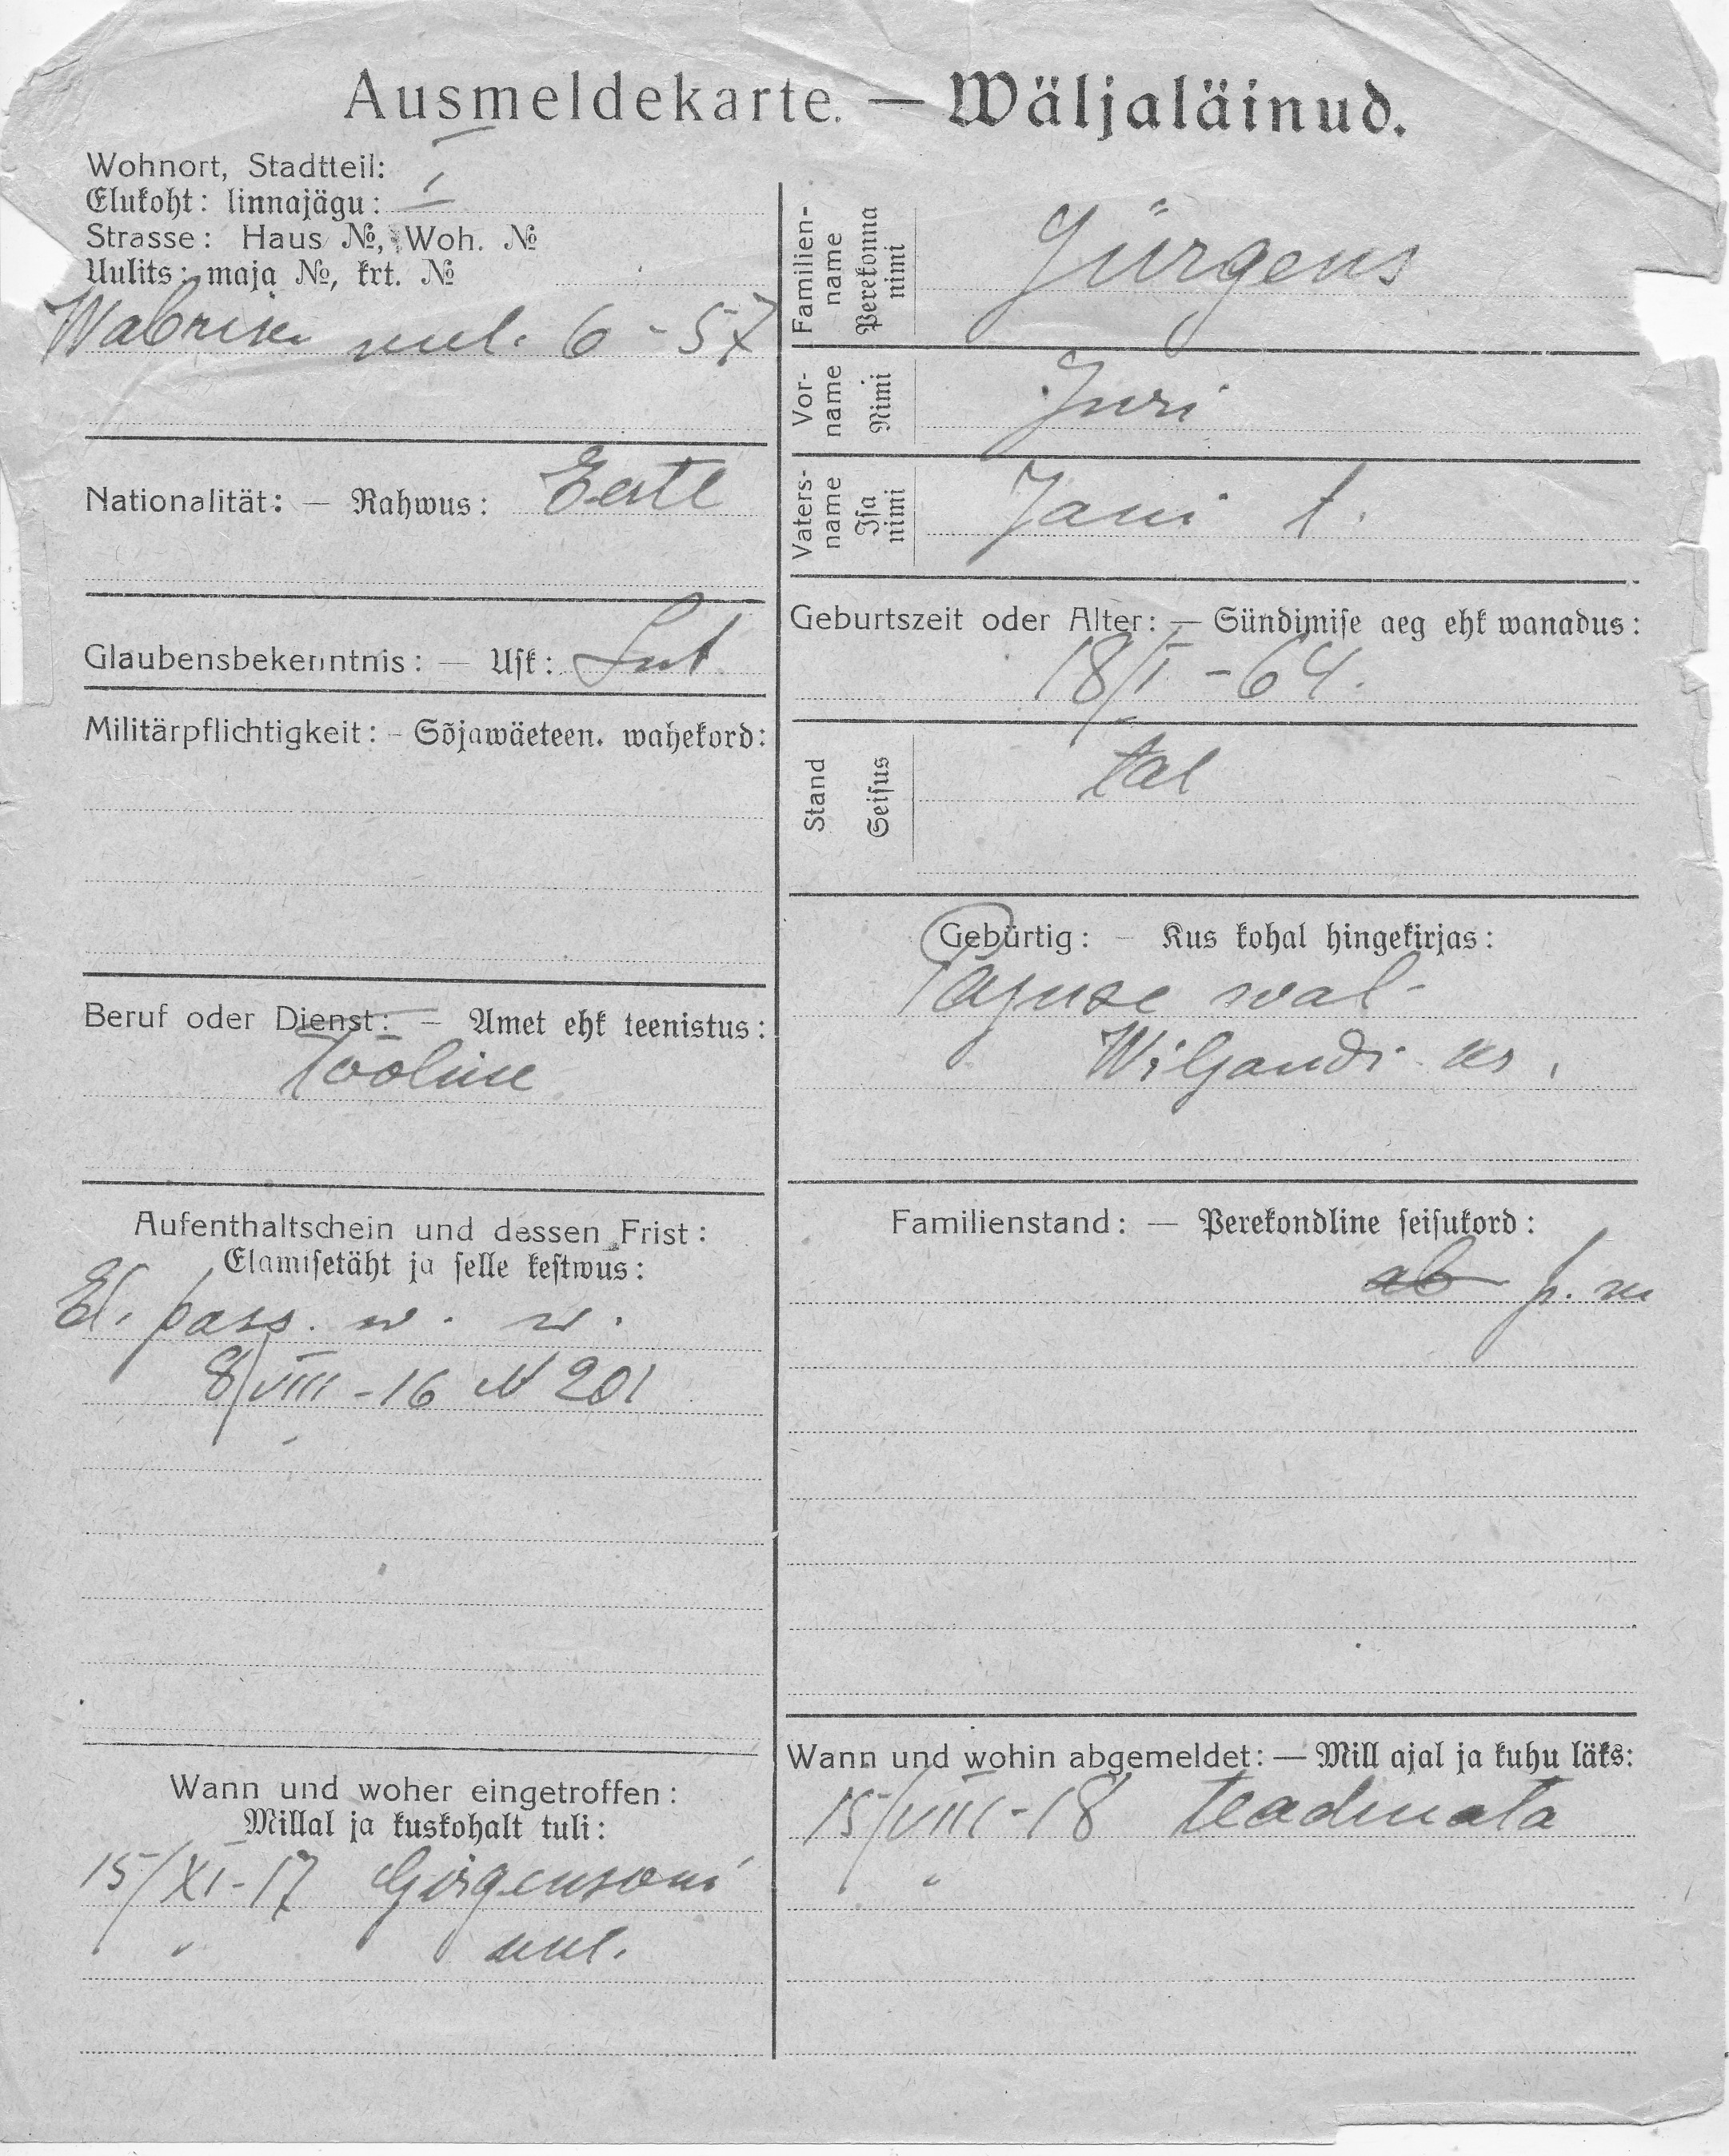 Ausmeldekarte. — Wäljaläinud.
Wohnort, Stadtteil:
Elukoht: linnajägu: I
Strasse: Haus №, Woh. №
Uulits: maja №, krt. №
Wabriku uul. 6 - 57
Nationalität: — Rahwus: Eestl
Glaubensbekenntnis: — Usk: Lut
Militärpflichtigkeit: - Sõjawäeteen. wahekord:
Beruf oder Dienst: — Amet ehk teenistus:
Tööline
Aufenthaltschein und dessen Frist:
Elamisetäht ja selle kestwus:
El. pass. w. w.
8/VIII - 16 N 201
Wann und woher eingetroffen:
Millal ja kuskohalt tuli:
15/XI - 17 Girgensoni
" " uul.
Familien-name Perekonna nimi Jürgens
Vor-name Nimi Juri
Vaters-name Isa nimi Jani t.
Geburtszeit oder Alter: — Sündimise aeg ehk wanadus:
18/I - 64.
Stand Seisus tal
Gebürtig: — Kus kohal hingekirjas:
Pajuse wal.
Wiljandi kr.
Familienstand: — Perekondline seisukord:
ab p. m
Wann und wohin abgemeldet: — Mill ajal ja kuhu läks:
15/VIII - 18 teadmata